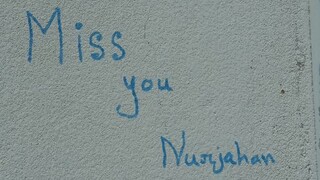 Miss
you
Nurjahan